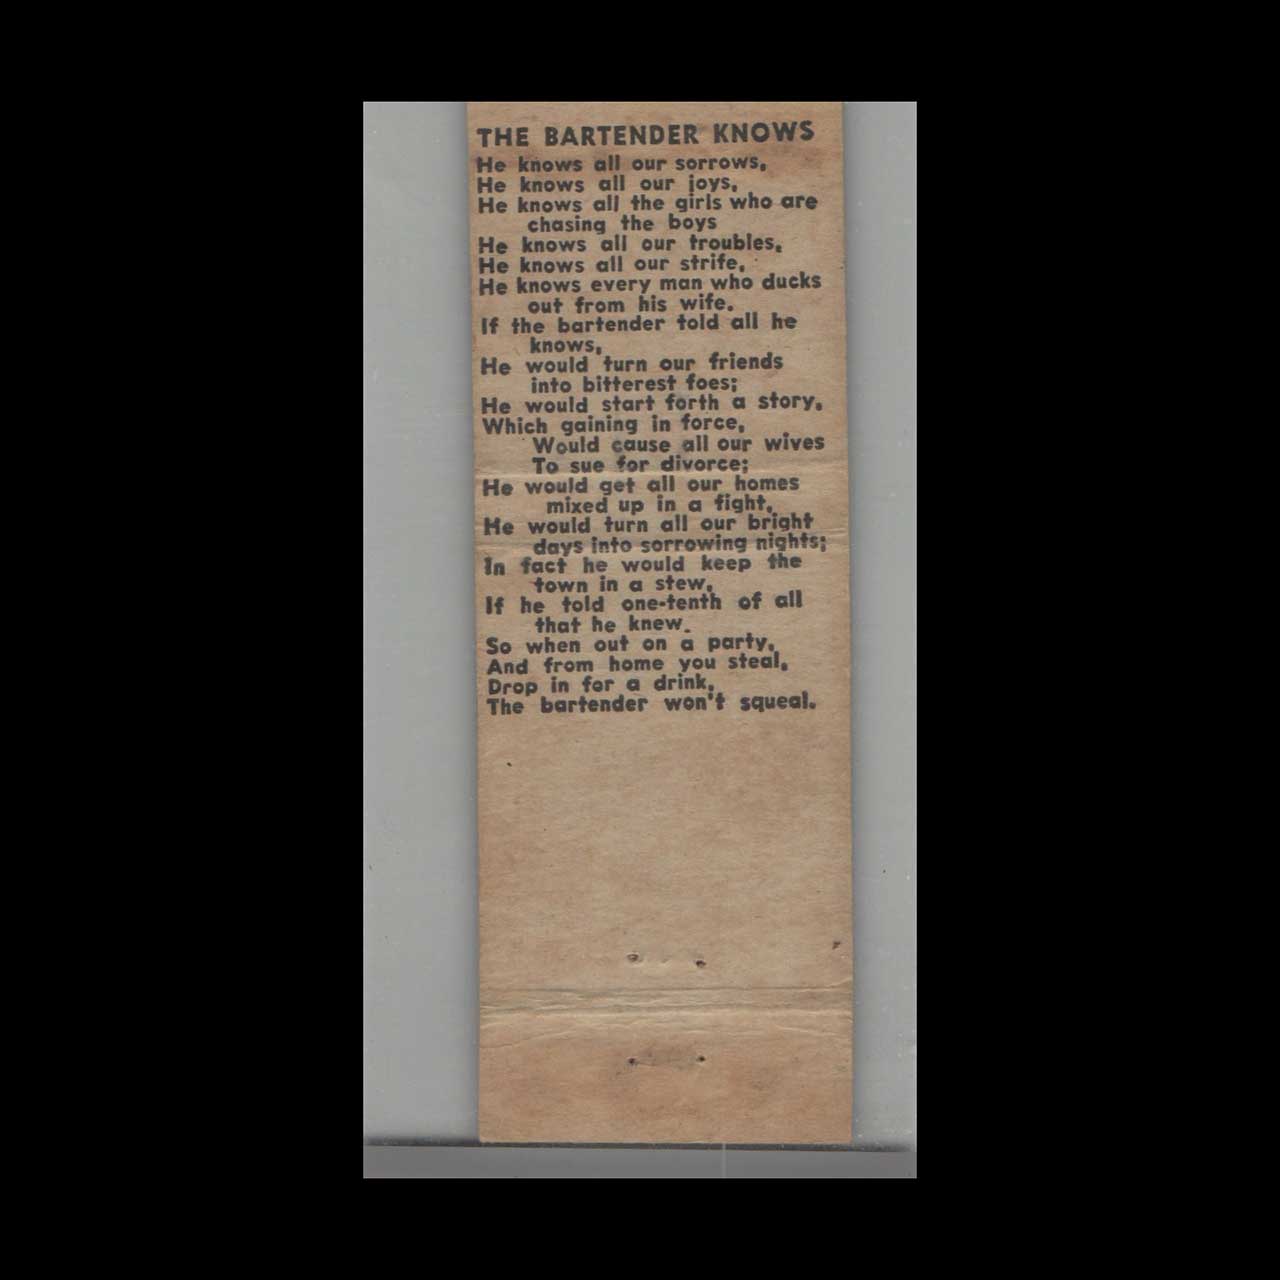 THE BARTENDER KNOWS
He knows all our sorrows,
He knows all our joys,
He knows all the girls who are
chasing the boys
He knows all our troubles,
He knows all our strife,
He knows every man who ducks
out from his wife.
If the bartender told all he
knows,
He would turn our friends
into bitterest foes;
He would start forth a story,
Which gaining in force,
Would cause all our wives
To sue for divorce;
He would get all our homes
mixed up in a fight,
He would turn all our bright
days into sorrowing nights;
In fact he would keep the
town in a stew,
If he told one-tenth of all
that he knew.
So when out on a party,
And from home you steal,
Drop in for a drink,
The bartender won't squeal.